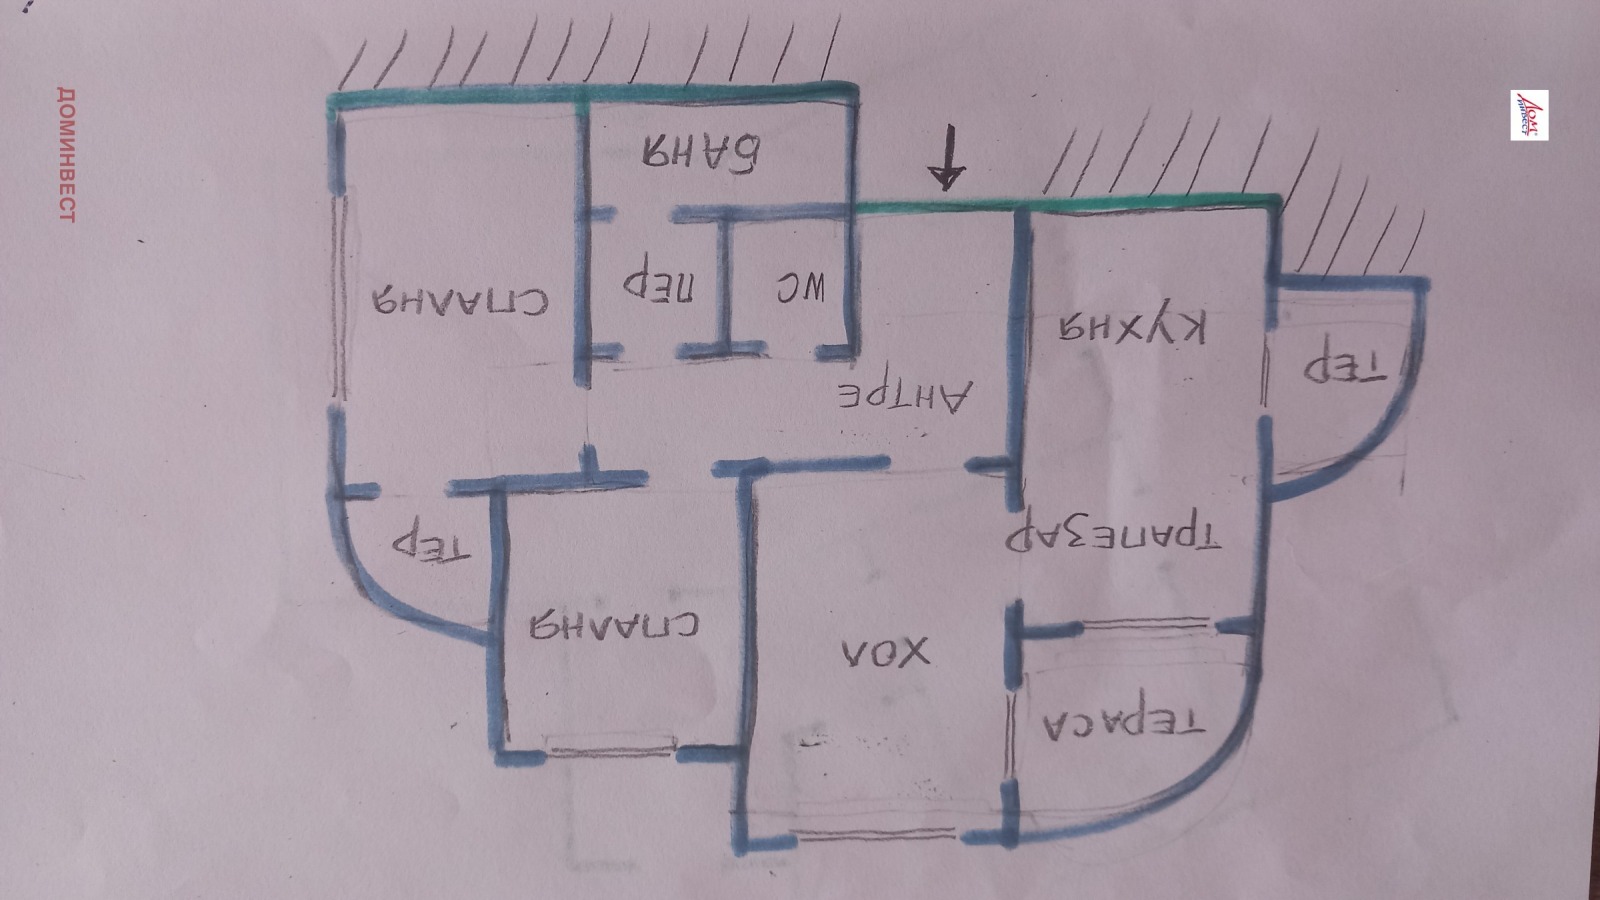 ТЕРАСА
ХОЛ
СПАЛНЯ
ТРАПЕЗАР
ТЕР
АНТРЕ
КУХНЯ
ТЕР
WC
ПЕР
СПАЛНЯ
БАНЯ
ДОМИНВЕСТ
ДОМ
ИНВЕСТ